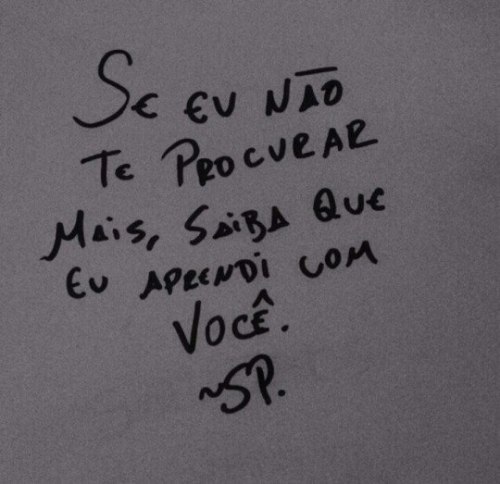 SE EU NÃO
TE PROCURAR
MAiS, SAiBA QUE
EU APRENDi COM
VOCÊ.
~SP.